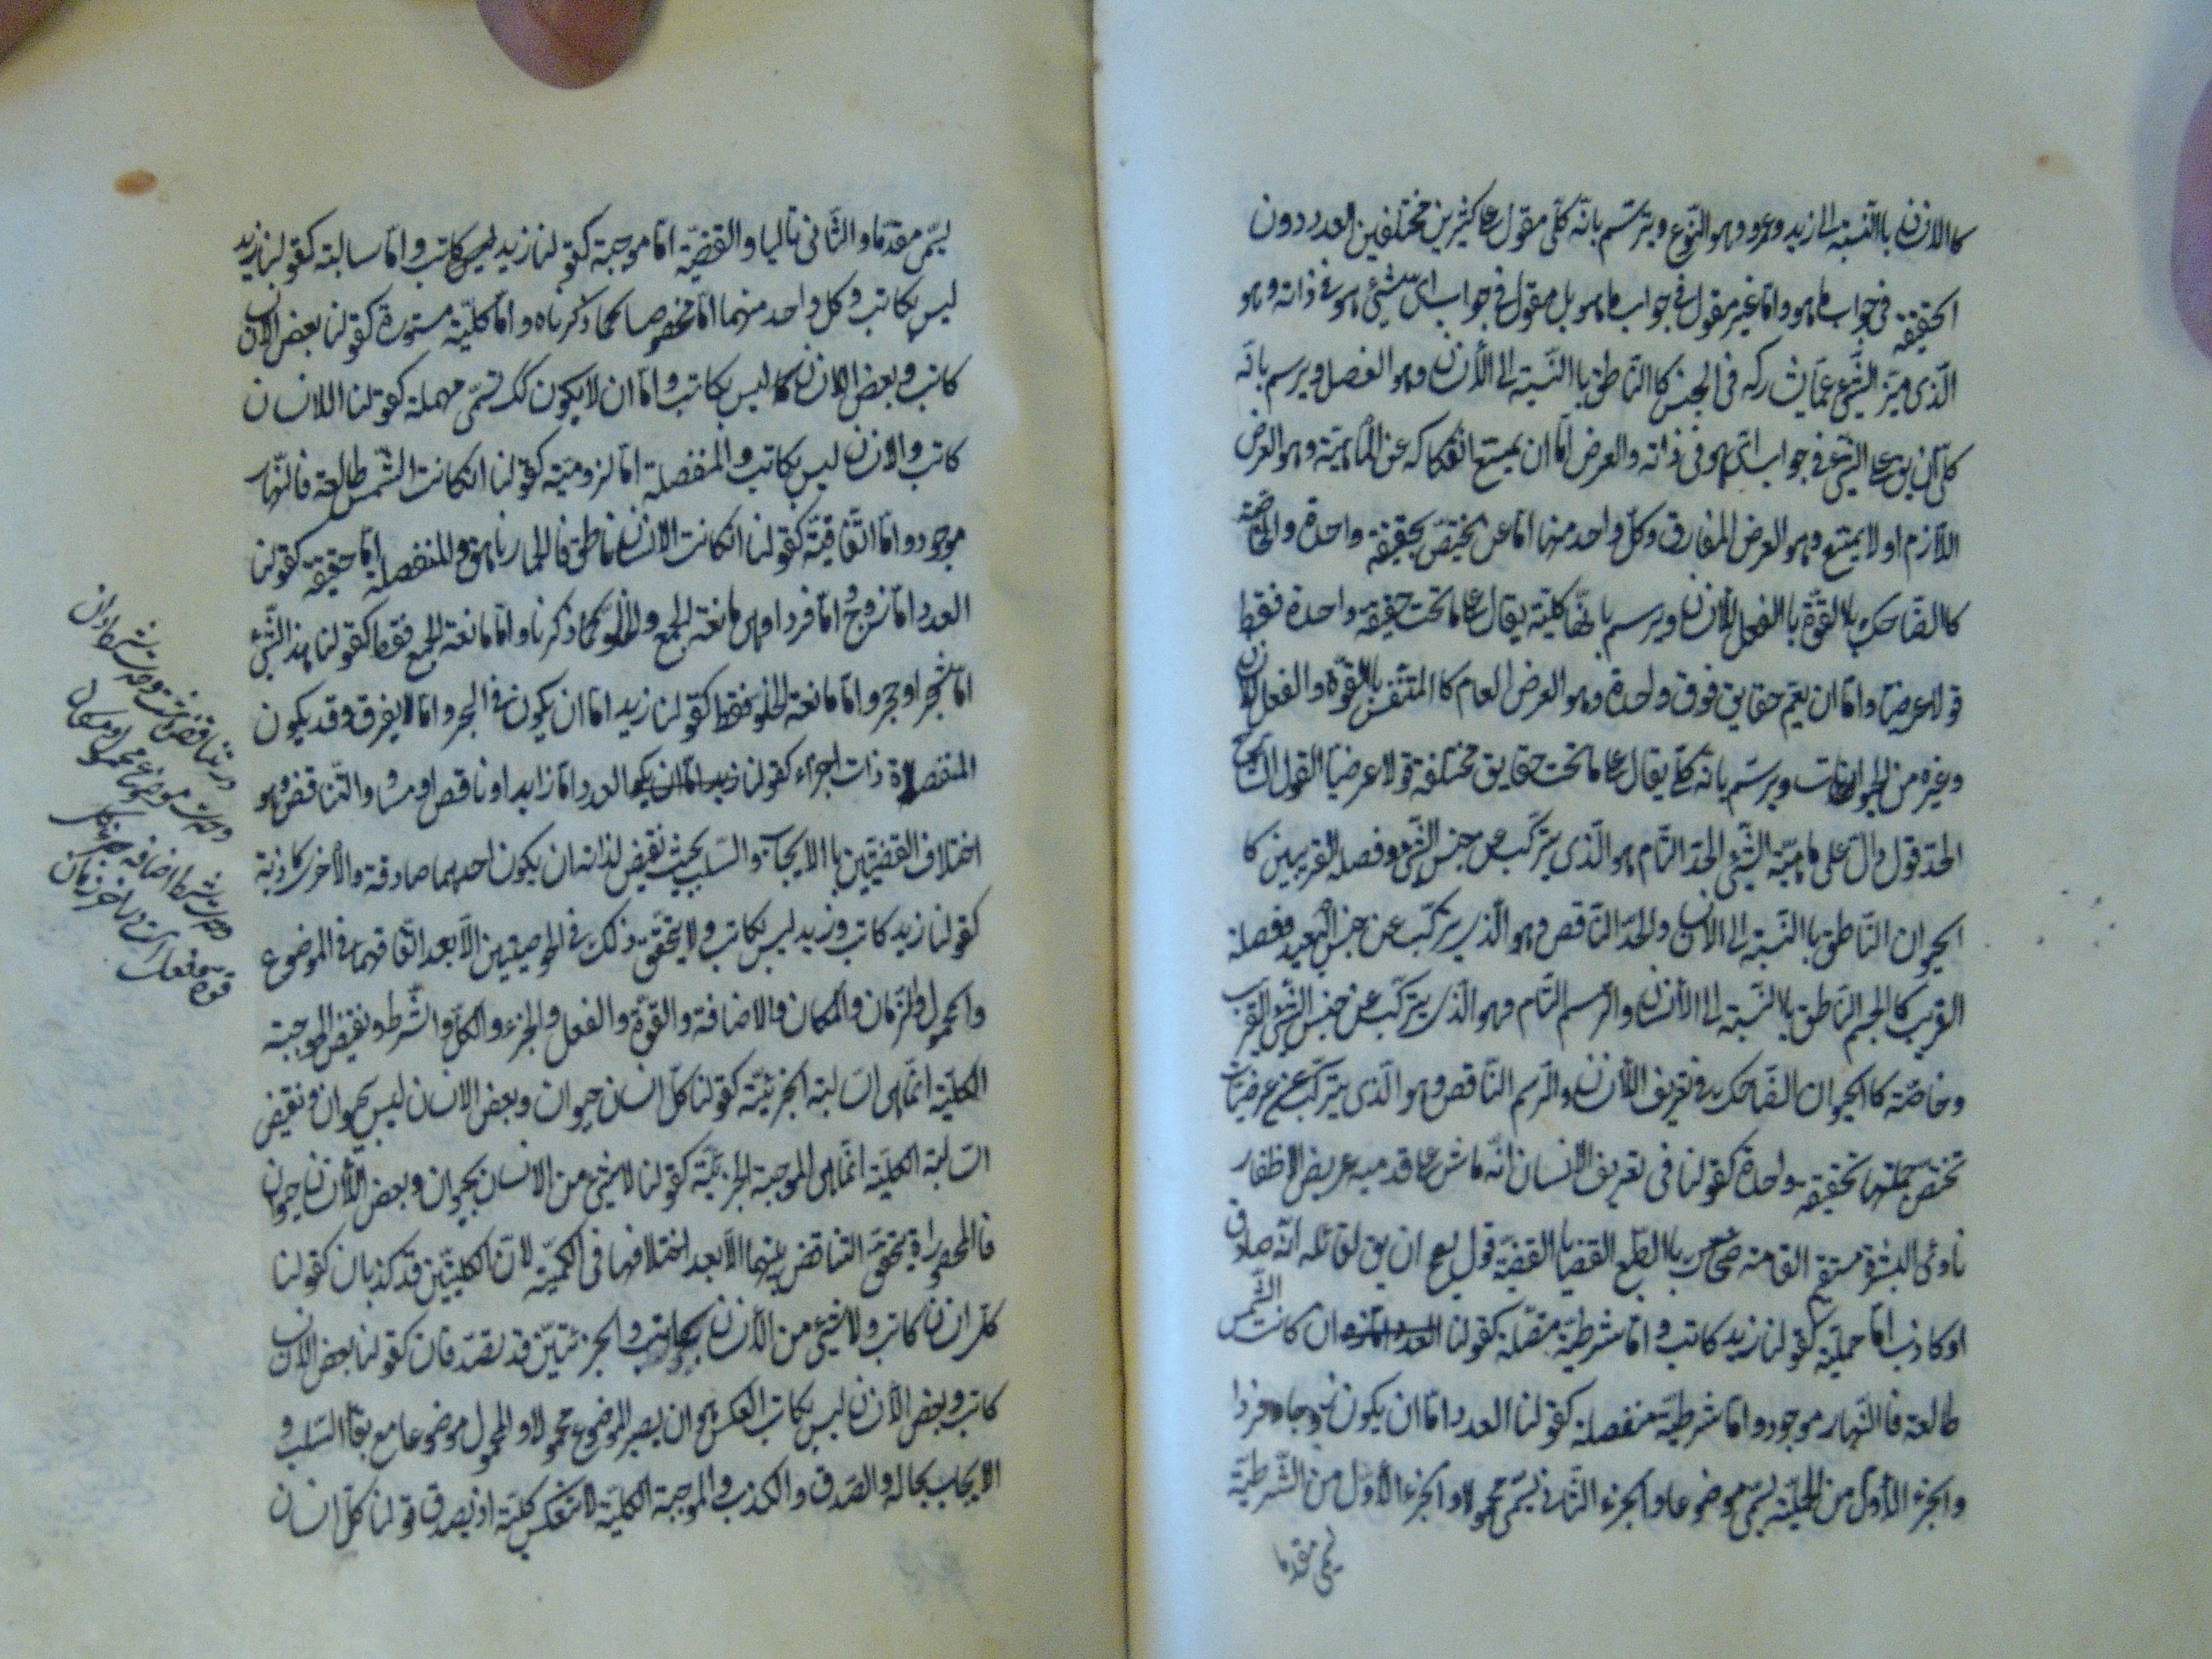 كالانسان بالنسبة الى زيد وعمرو وهو النوع ويرتسم بانه كلّى مقول على كثيرين مختلفين العدد دون
الحقيقة فى جواب ما هو واما غير مقول فى جواب ما هو بل مقول فى جواب اى شيئ هو فى ذاته وهو
الّذى يميّز الشّئ عمّا يشاركه فى الجنس كا النّاطق با النّسبة الى الأنسان وهو الفصل ويرسم بانّه
كلّى ان يق على الشّئ فى جواب اىّ هو فى ذاته والعرض امّا ان يمتنع انفكاكه عن الماهيّة وهو العرض
اللّازم او لا يمتنع وهو العرض المفارق وكلّ واحد منهما امّا عن يختصّ بحقيقة واحدة والخاصّة
كا الضّاحك با القوّة با الفعل للأنسان ويرسم بانّها كليّة يقال على ما تحت حقيقة واحدة فقط
قولا عرضيا وامّا ان يعمّ حقايق فوق واحدة وهو العرض العام كا المتنفّس با القوّة والفعل للانسان
وغيره من الحيوانات ويرسّم بانّه كلّى يقال على ما تحت حقايق مختلفة قولا عرضيّا القول الشارح
الحدّ قول دالّ على ماهيّة الشّئ الحدّ التّام هو الّذى يتركّب عن جنس الشّئ وفصله القريبين كا
الحيوان النّاطق با النّسبة الى الانسان والحدّ النّاقص وهو الّذى يتركّب عن جنس البعيد وفصله
القريب كا الجسم النّاطق با النّسبة الى الأنسان والرّسم التّام وهو الّذى يتركّب عن جنس الشّئ القريب
وخاصّته كا الحيوان الضّاحك فى تعريف الأنسان والرّسم النّاقص وهو الّذى يتركّب عن عرضيّات
تختصّ جملتها بحقيقة واحدة كقولنا فى تعريف الانسان انّه ماش على قدميه عريض الاظفار
بادى البشرة مستقيم القامة ضحّاك با الطّبع القضايا القضيّة قول يصح ان يق لقائله انّه صادق
او كاذب امّا حمليّة كقولنا زيد كاتب وامّا شرطيّة متّصلة كقولنا ان كانت الشّمس
طالعة فا النّهار موجود وامّا شرطيّة منفصلة كقولنا العدد امّا ان يكون زوجا او فردا
والجزء الأوّل من الحمليّة يسمّى موضوعا والجزء الثّانى يسمّى محمولا والجزء الأوّل من الشّرطيّة
يسمى مقدما
يسمّى مقدّما والثّانى تاليا والقضيّة امّا موجبة كقولنا زيد كاتب وامّا سالبة كقولنا زيد
ليس بكاتب وكل واحد منهما امّا مخصوصا كما ذكرناه وامّا كليّة مسوّرة كقولنا بعض الانسان
كاتب وبعض الانسان ليس بكاتب وامّا ان لا يكون كك تسمّى مهملة كقولنا اللانسان
كاتب والانسان ليس بكاتب والمنفصلة امّا لزوميّة كقولنا انكانت الشّمس طالعة فالنّهار
موجود وامّا اتّفاقيّة كقولنا انكانت الانسان ناطق فا الحمار ناهق والمنفصلة امّا حقيقة كقولنا
العدد امّا زوج وامّا فرد وهى مانعة الجمع والخلو كما ذكرنا وامّا مانعة الجمع فقط كقولنا هذا الشّئ
امّا شجر او حجر وامّا مانعة الخلو فقط كقولنا زيد امّا ان يكون فى البحر وامّا لا يغرق وقد يكون
المنفصلاة ذات اجزاء كقولنا العدد امّا زايد او ناقص او مساو التّناقض وهو
اختلاف القضيّتين با الايجاب والسّلب بحيث نقيض لذاته ان يكون احديهما صادقة والأخرى كاذبة
كقولنا زيد كاتب وزيد ليس بكاتب ولا يتحقّق ذلك فى الموصيتين الّا بعد اتّفاقهما فى الموضوع
والمحمول والزّمان والمكان والاضافة والقوّة والفعل والجزء والكلّ والشّرط ونقيض الموجبة
الكليّة انّما هى السالبة الجزئيّة كقولنا كلّ انسان حيوان وبعض الانسان ليس بحيوان ونقيض
السالبة الكليّة انّما هى الموجبة الجزئيّة كقولنا لا شئ من الانسان بحيوان وبعض الأنسان حيوان
فا المحصوراة يتحقّق التناقض بينهما الّا بعد اختلافهما فى الكميّة لانّ الكليّتين قد تكذبان كقولنا
كلّ انسان كاتب ولا شئ من الأنسان بكاتب والجزئيّتين قد تصدقان كقولنا بعض الانسان
كاتب وبعض الأنسان ليس بكاتب العكس هو ان يصير الموضوع محمولا والمحمول موضوعا مع بقاء السّلب و
الايجاب بحاله والصّدق والكذب والموجبة الكليّة لا تنعكس كليّة اذ يصدق قولنا كلّ انسان
در تناقض هشت وحدت شرط دان
وحدت موضوع محمول ومكان
وحدت شرط اضافه جزء كل
قوه وفعلست در اخر زمان